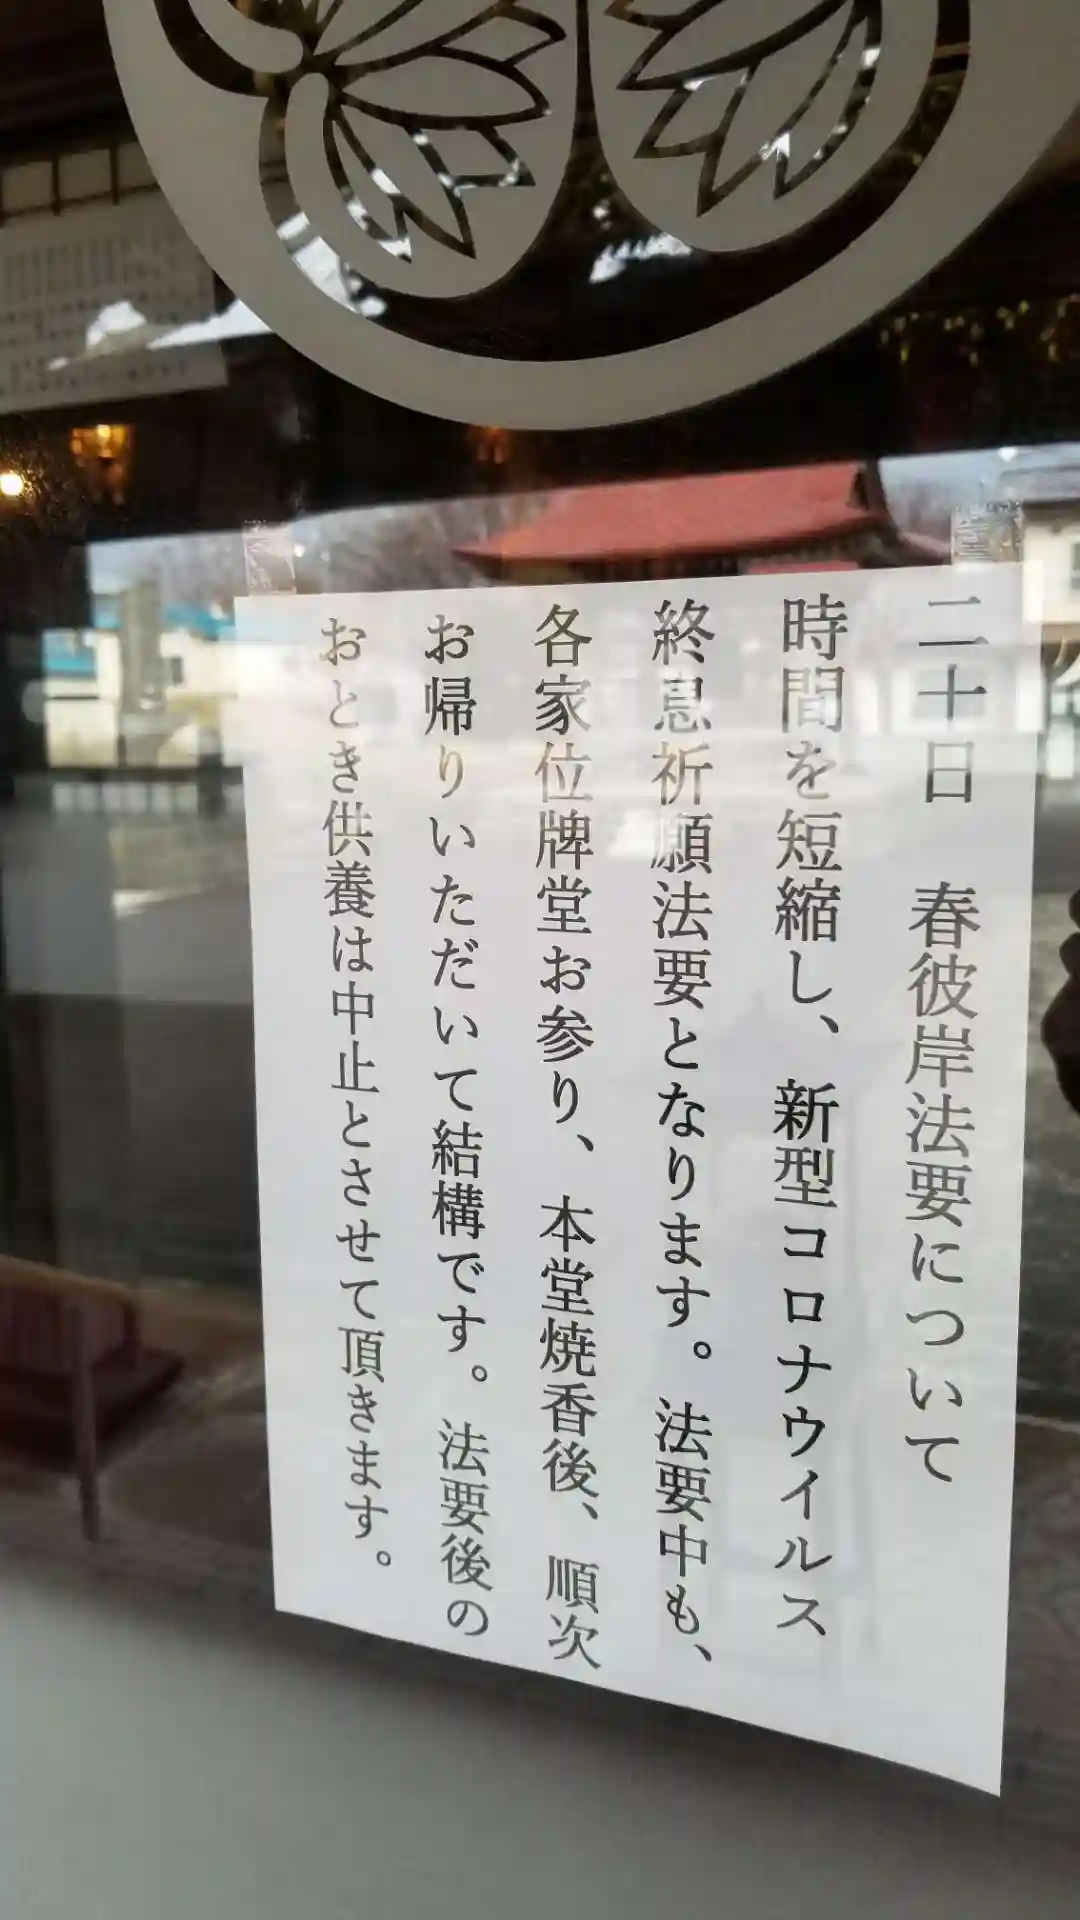 二十日　春彼岸法要について
時間を短縮し、新型コロナウイルス
終息祈願法要となります。法要中も、
各家位牌堂お参り、本堂焼香後、順次
お帰りいただいて結構です。法要後の
おとき供養は中止とさせて頂きます。